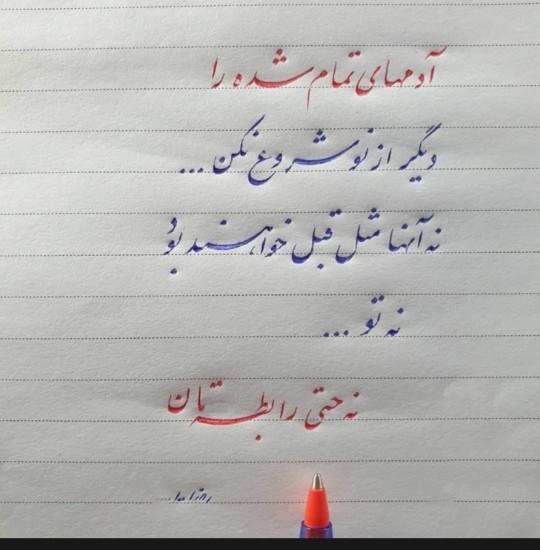 آدمهای تمام شده را
دیگر از نو شروع نکن...
نه آنها مثل قبل خواهند بود
نه تو ...
نه حتی رابطه تان